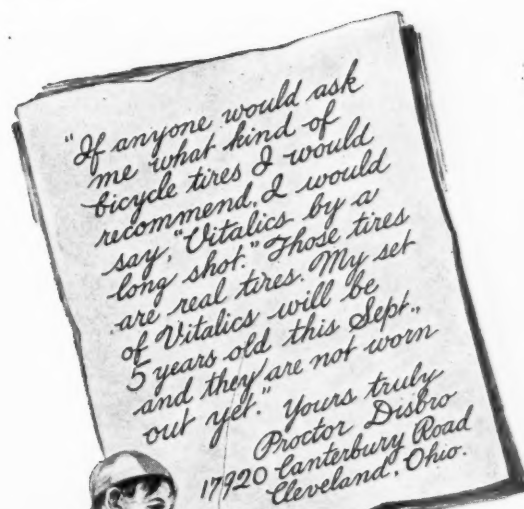 "If anyone would ask
me what kind of
bicycle tires I would
recommend, I would
say, "Vitalics by a
long shot." Those tires
are real tires. My set
of Vitalics will be
5 years old this Sept.,
and they are not worn
out yet."
Yours truly
Proctor Disbro
17920 Canterbury Road
Cleveland, Ohio.